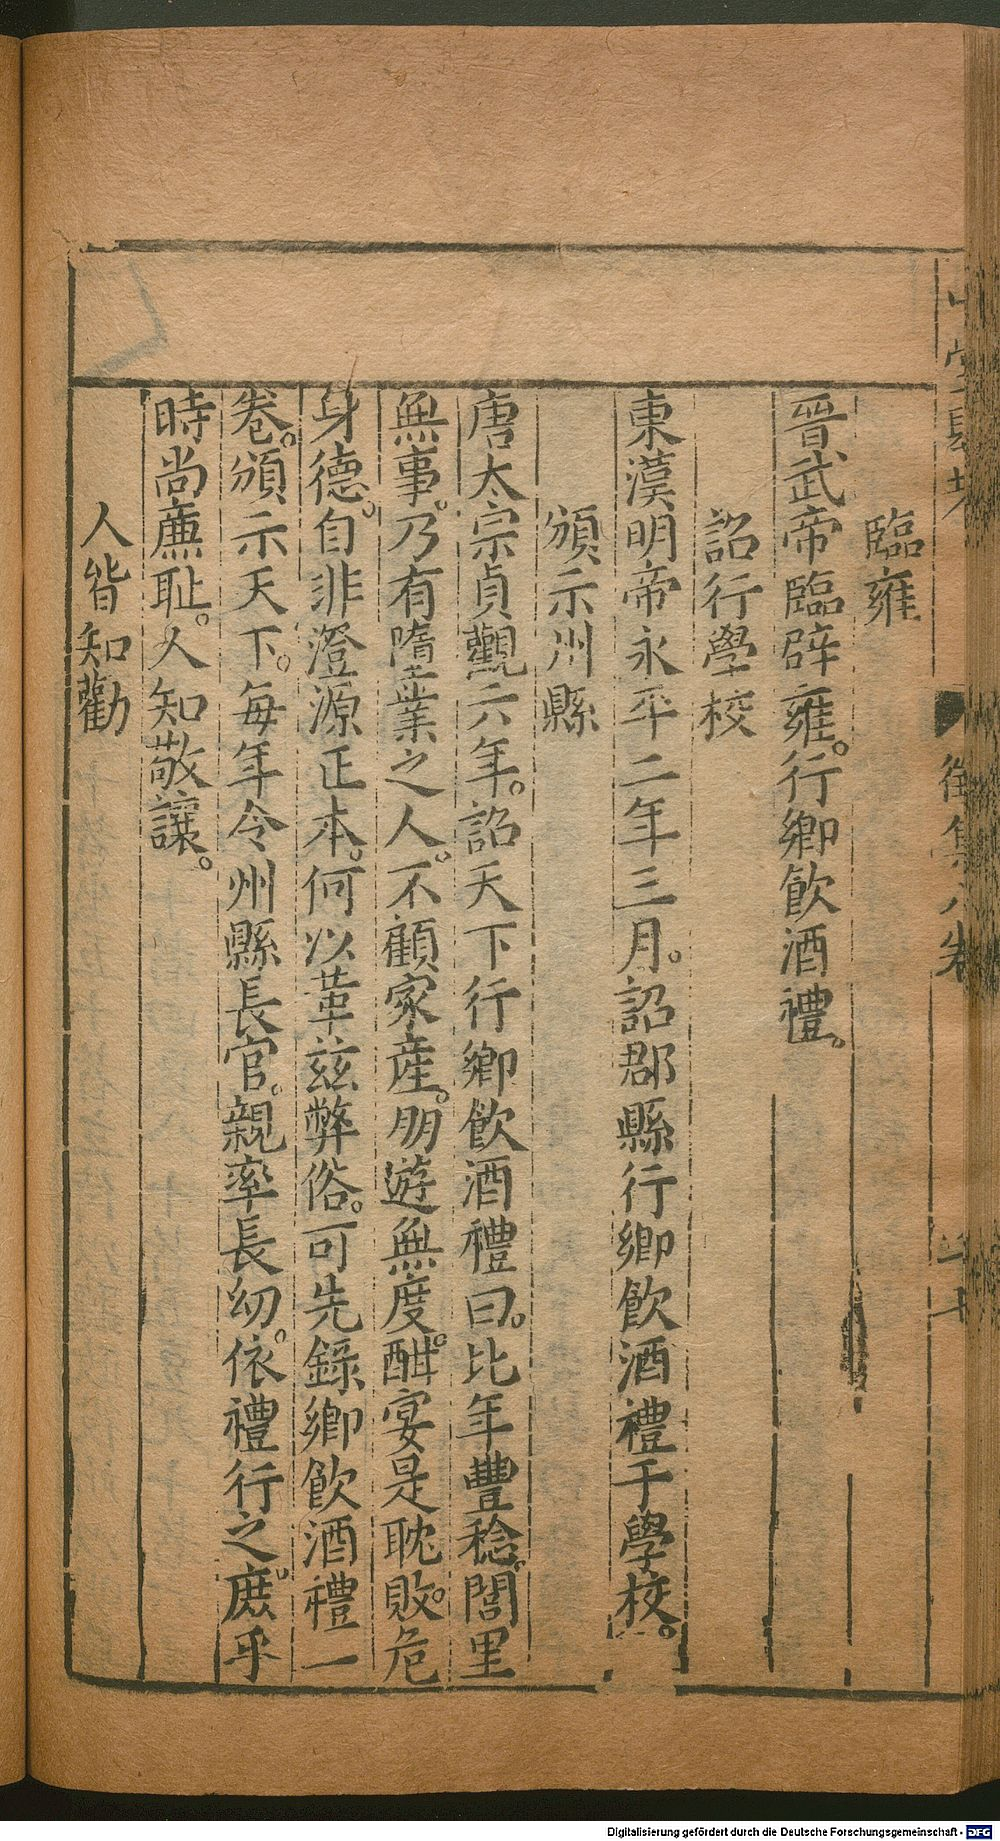 臨雍
晉武帝臨辟雍。行鄉飲酒禮。
詔行學校
東漢明帝永平二年三月。詔郡縣行鄉飲酒禮于學校。
頒示州縣
唐太宗貞觀六年。詔天下行鄉飲酒禮曰。比年豐稔。閭里
無事。乃有隳業之人。不顧家産。朋遊無度。酣宴是耽。敗。危
身德。自非澄源正本。何以革兹弊俗。可先錄鄉飲酒禮一
卷。頒示天下。每年令州縣長官。親率長幼。依禮行之。庶乎
時尚廉耻。人知敬讓。
人皆知勸
Digitalisierung gefördert durch die Deutsche Forschungsgemeinschaft - DFG